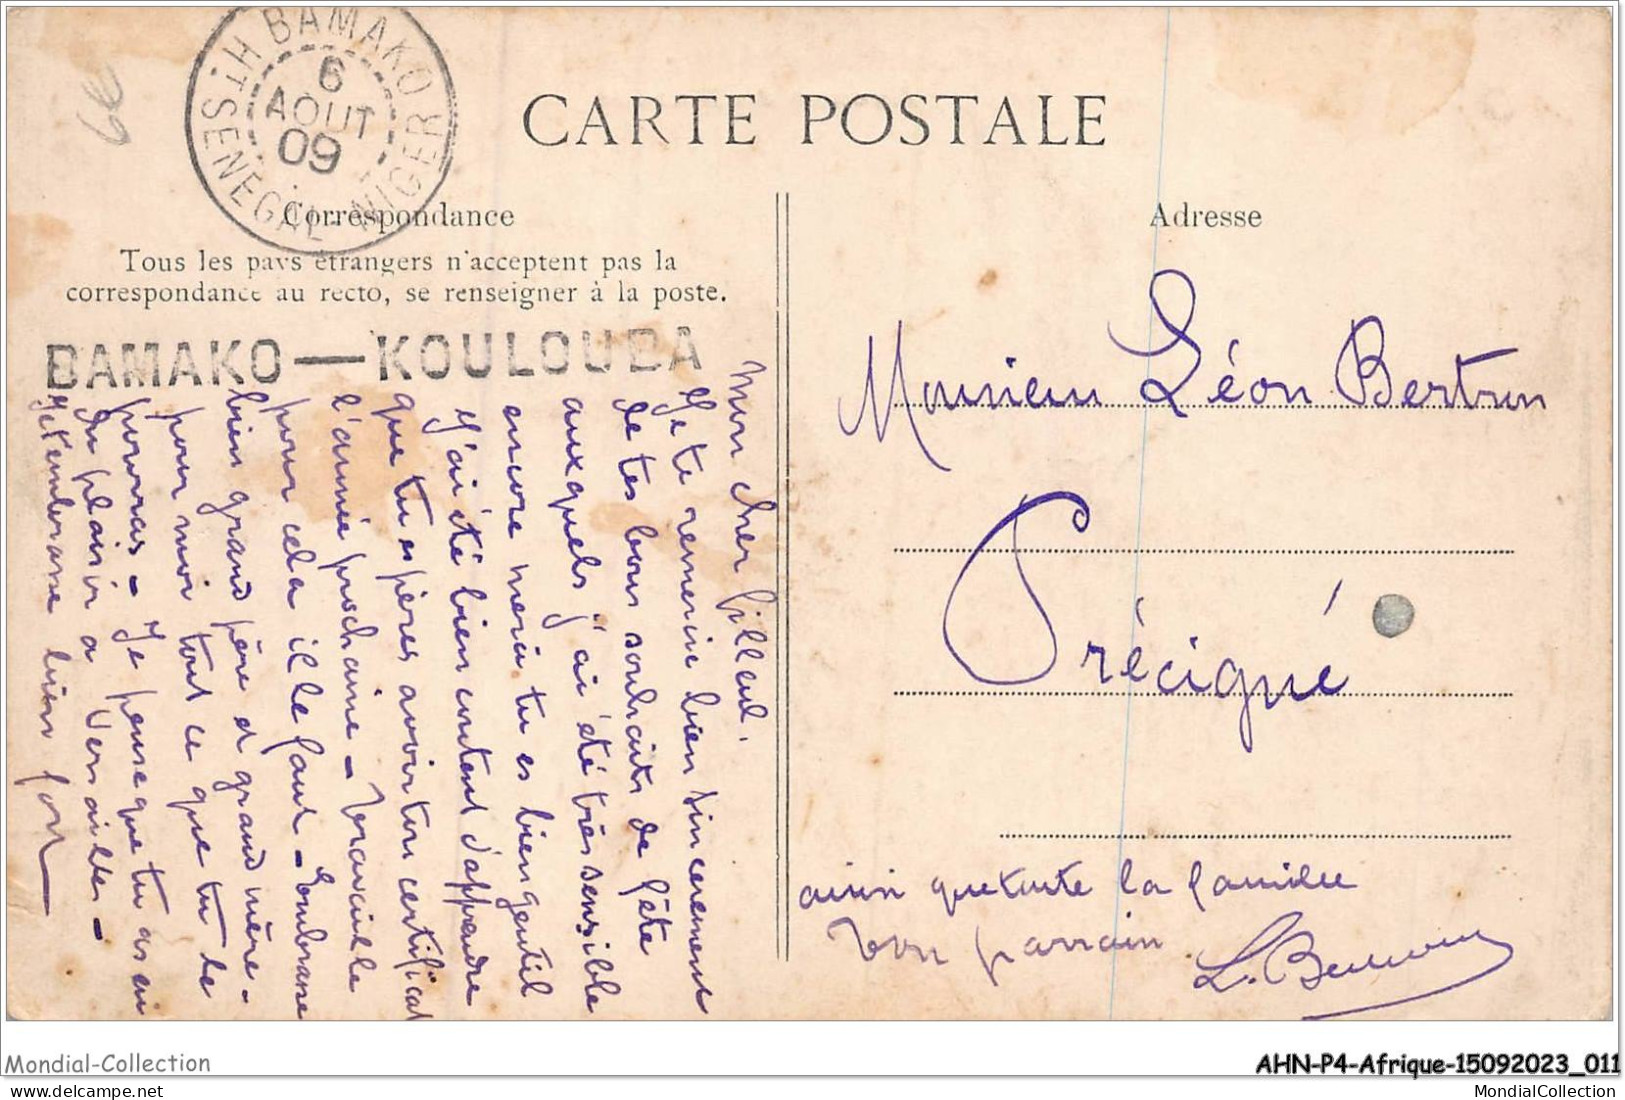 HT BAMAKO
6
AOUT
09
SENEGAL-NIGER
CARTE POSTALE
Correspondance
Tous les pays étrangers n'acceptent pas la
correspondance au recto, se renseigner à la poste.
BAMAKO—KOULOUBA
Mon cher filleul.
Je te remercie bien sincèrement
de tes bons souhaits de fête
auxquels j'ai été très sensible
encore merci tu es bien gentil
J'ai été bien content d'apprendre
que tu espères avoir ton certificat
l'année prochaine - travaille
pour cela il le faut - Embrasse
bien grand père et grand mère -
pour moi tout ce que tu le
pourras - Je pense que tu as eu
du plaisir à Versailles -
Je t'embrasse bien fort
Adresse
Monsieur Léon Bertron
Précigné
ainsi que toute la famille
Ton parrain
L.
Mondial-Collection
AHN-P4-Afrique-15092023_011
delcampe.net
MondialCollection